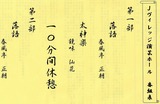 Jヴィレッジ演芸ホール 番組表
第一部
落語 春風亭 正朝
太神楽 鏡味 仙花
一〇分間休憩
第二部
落語 春風亭 正朝